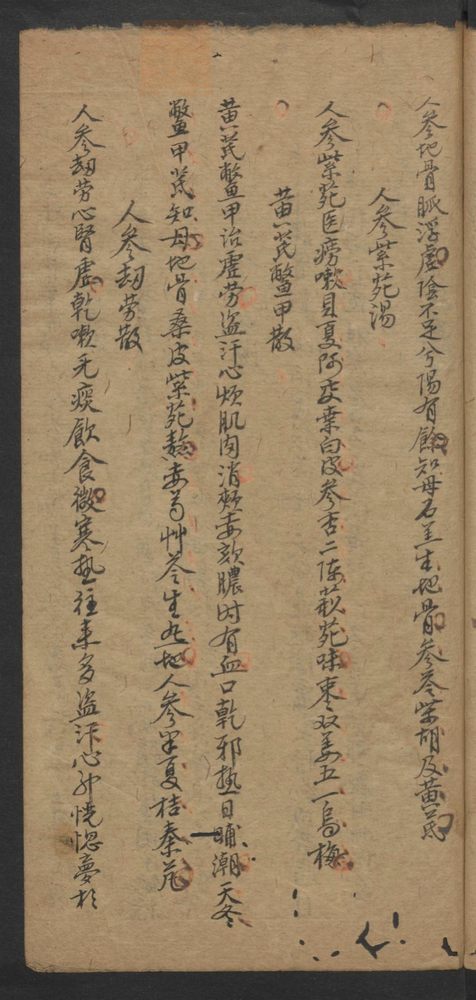 人參地骨脈浮虛陰不足兮陽有餘知母石羔生地骨參苓柴胡及黃芪
人參紫菀湯
人參紫菀医癆嗽貝夏阿皮桑白皮參杏二陳菀味棗双姜五一烏梅
黃芪鱉甲散
黃芪鱉甲治虛劳盜汗心煩肌肉消頰赤欬膿时有血口乾邪热日晡潮天冬
鱉甲芪知母地骨桑皮紫菀赤芍艸苓生地人參半夏桔秦艽
人參刼劳散
人參刼劳心腎虛乾嗽无痰飲食微寒热往来多盜汗心忡恍惚夢